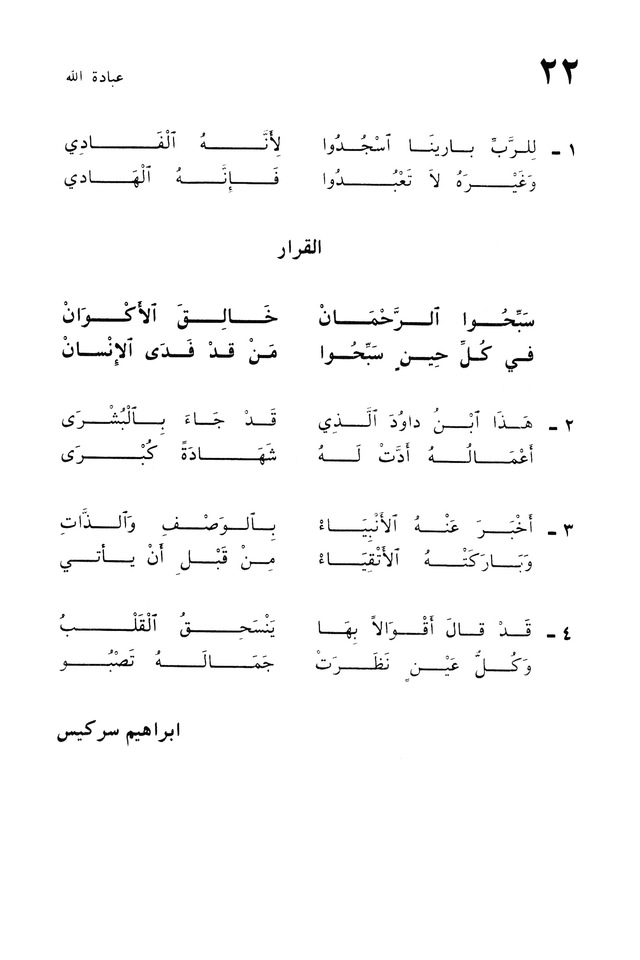 ٢٢
عبادة الله
١ - لِلرَّبِّ بارِينَا ٱسْجُدُوا لِأَنَّهُ ٱلْفَادِي
وَغَيْرَهُ لاَ تَعْبُدُوا فَإِنَّهُ ٱلْهَادِي
القرار
سَبِّحُوا ٱلرَّحْمَانْ خَالِقَ ٱلأَكْوَانْ
في كُلِّ حِينٍ سَبِّحُوا مَنْ قَدْ فَدَى ٱلإِنْسَانْ
٢ - هَذَا ٱبْنُ داوُدَ ٱلَّذِي قَدْ جَاءَ بِٱلْبُشْرَى
أَعْمَالُهُ أَدَّتْ لَهُ شَهَادَةً كُبْرَى
٣ - أَخْبَرَ عَنْهُ ٱلأَنْبِيَاءْ بِٱلوَصْفِ وَٱلذَّاتِ
وَبَارَكَتْهُ ٱلأَتْقِيَاءْ مِنْ قَبْلِ أَنْ يَأتي
٤ - قَدْ قالَ أَقْوَالاً بِهَا يَنْسَحِقُ ٱلْقَلْبُ
وَكُلُّ عَيْنٍ نَظَرَتْ جَمَالَهُ تَصْبُو
ابراهيم سركيس